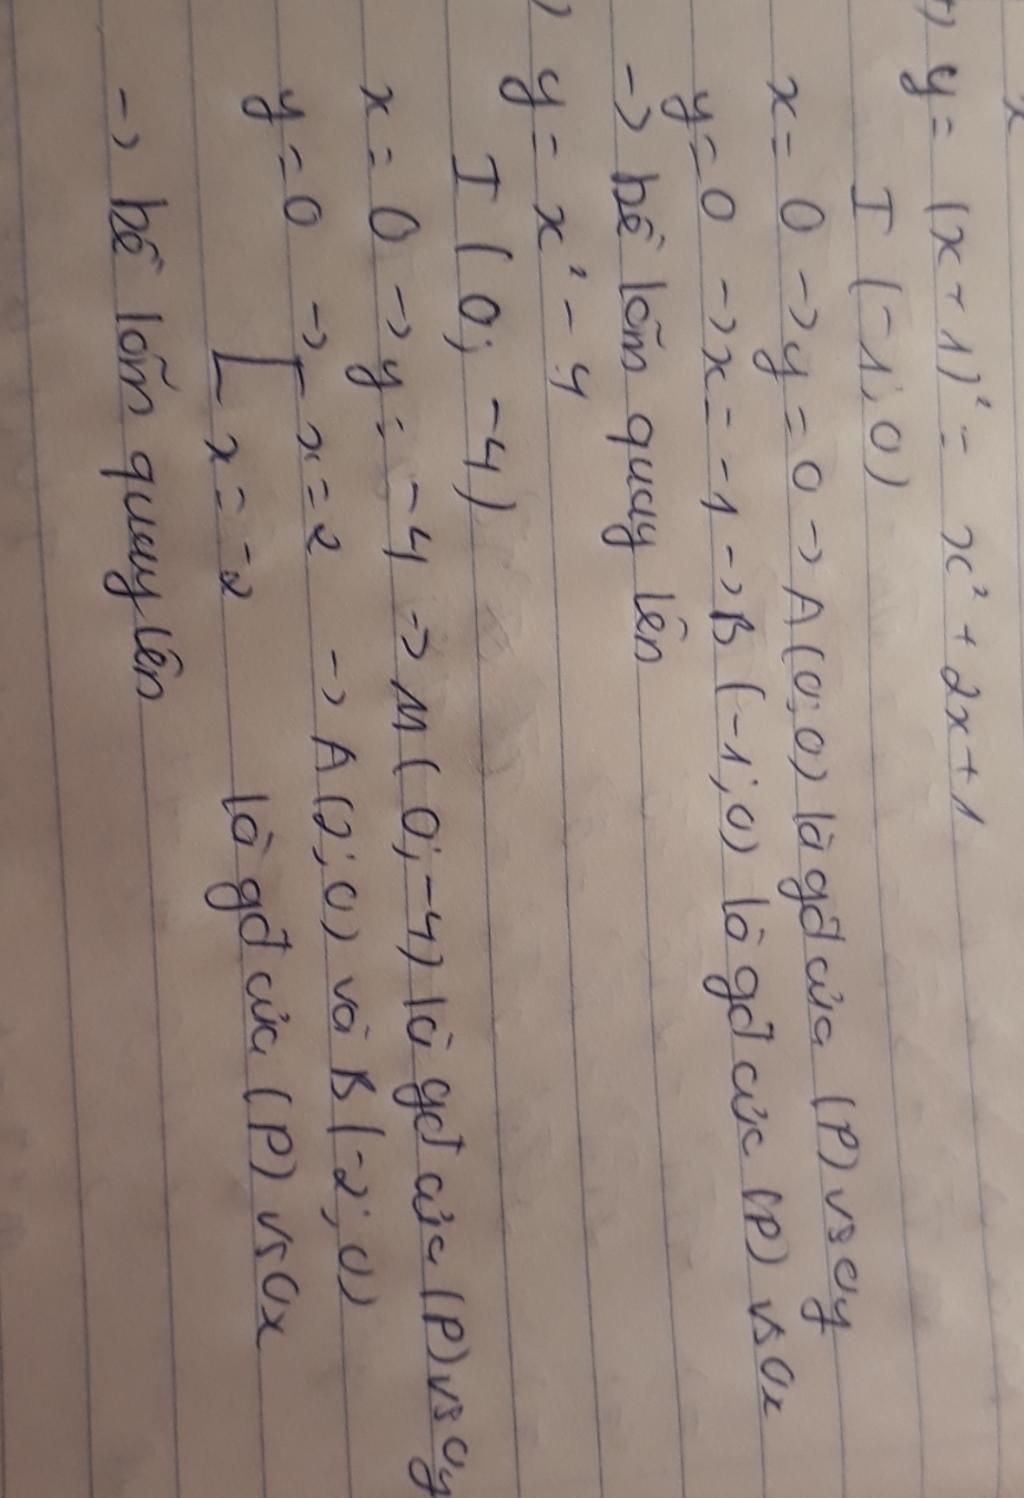 y = (x + 1)² = x² + 2x + 1
I (-1; 0)
x = 0 -> y = 0 -> A (0; 0) là gđ của (P) vs Oy
y = 0 -> x = -1 -> B (-1; 0) là gđ của (P) vs Ox
-> bề lõm quay lên
) y = x² - 4
I (0; -4)
x = 0 -> y = -4 -> M (0; -4) là gđ của (P) vs Oy
y = 0 -> [ x = 2 -> A (2; 0) và B (-2; 0)
x = -2 là gđ của (P) vs Ox
-> bề lõm quay lên